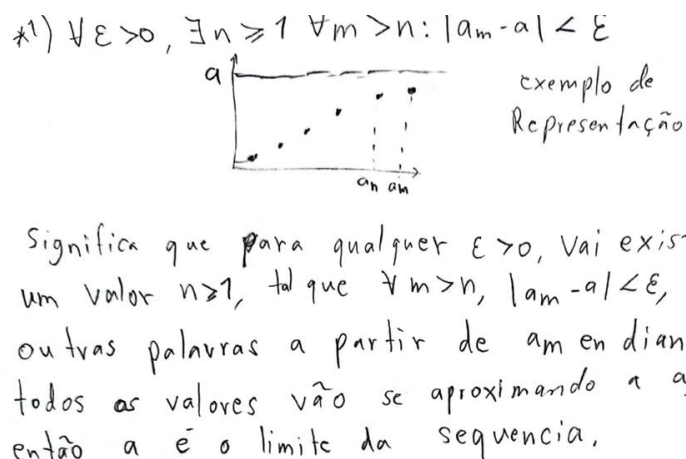 *1) ∀ε>0, ∃n⩾1 ∀m>n: |am-a| < ε
a
exemplo de
Representação
an am
Significa que para qualquer ε>0, vai exis
um valor n⩾1, tal que ∀m>n, |am-a|<ε,
outras palavras a partir de am en dian
todos os valores vão se aproximando a a,
então a é o limite da sequencia.